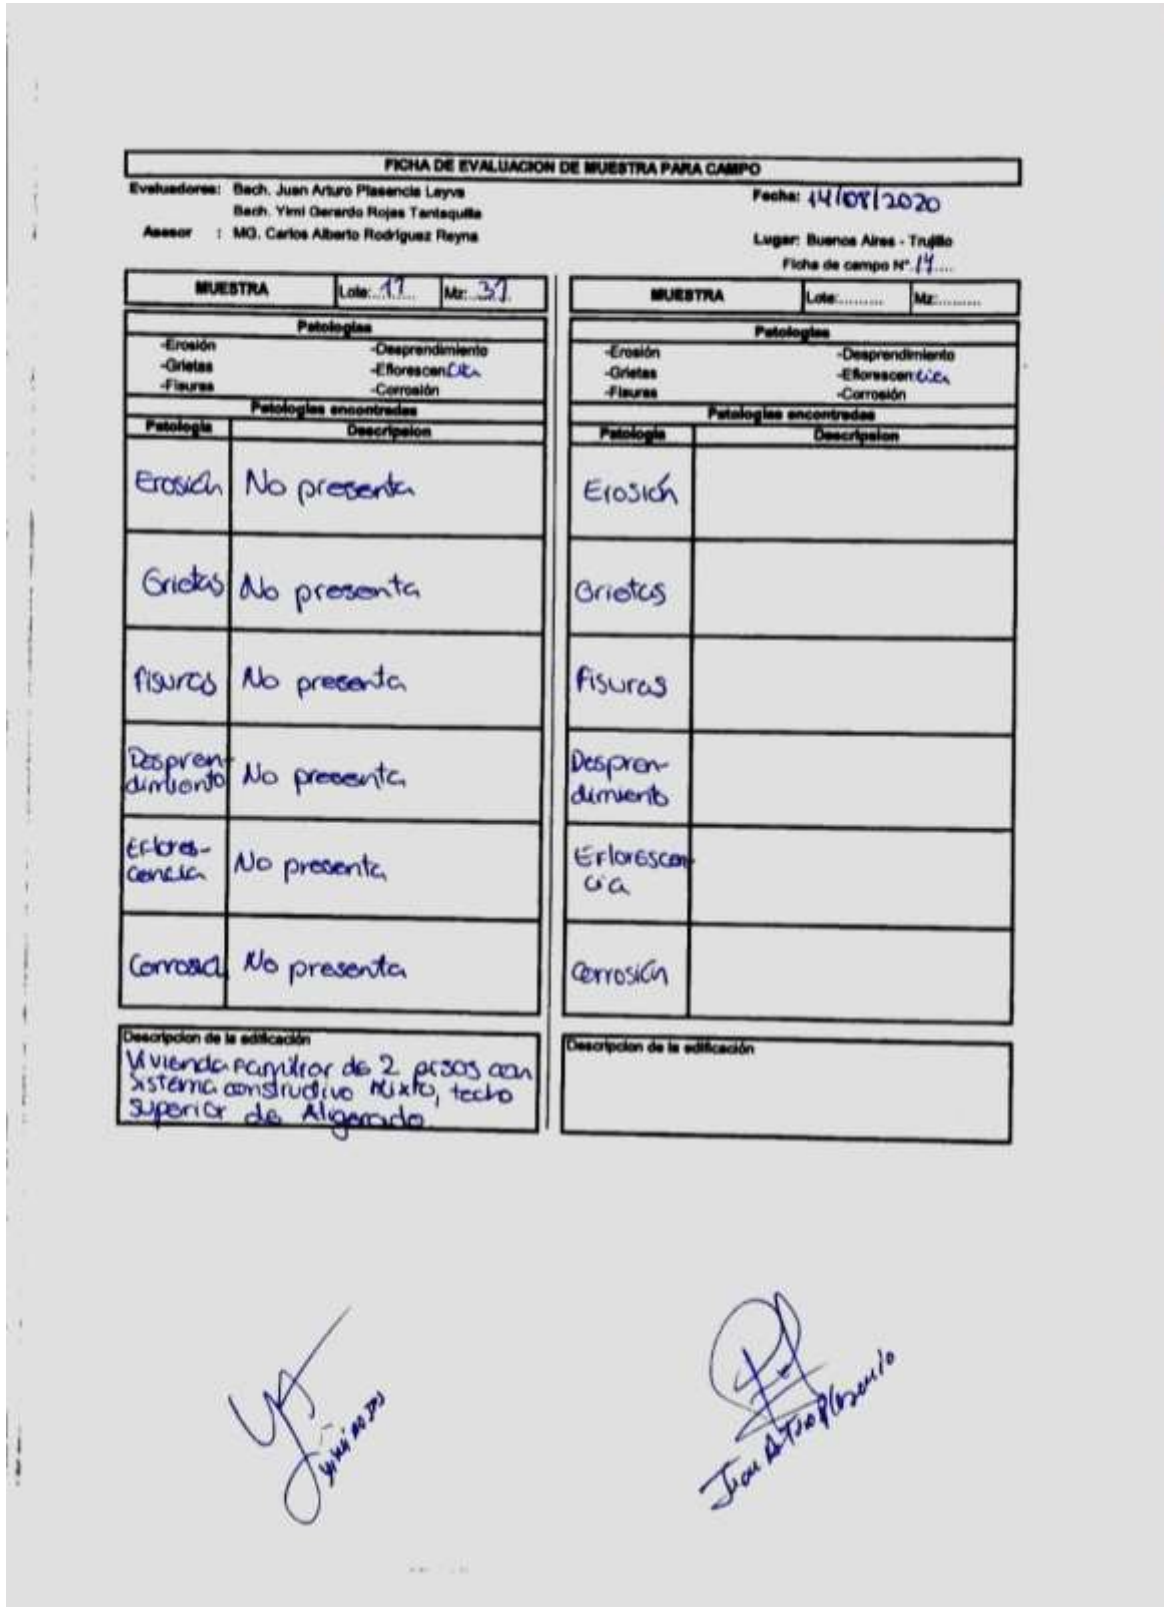 FICHA DE EVALUACION DE MUESTRA PARA CAMPO
Evaluadores: Bach. Juan Arturo Plasencia Leyva
Bach. Yimi Gerardo Rojas Tantaquilla
Asesor : MG. Carlos Alberto Rodriguez Reyna
Fecha: 14/08/2020
Lugar: Buenos Aires - Trujillo
Ficha de campo N° 14....
MUESTRA Lote:... Mz:...
Patologias
-Erosión -Desprendimiento
-Grietas -Eflorescencia
-Fisuras -Corrosión
Patologias encontradas
Patologia Descripsion
Erosión No presenta
Grietas No presenta
fisuras No presenta
Despren-
dimiento No presenta
Eflores-
cencia No presenta
Corrosió No presenta
Descripcion de la edificación
Vivienda Familiar de 2 pisos con
sistema constructivo Mixto, techo
superior de Aligerado.
MUESTRA Lote:......... Mz:.........
Patologias
-Erosión -Desprendimiento
-Grietas -Eflorescencia
-Fisuras -Corrosión
Patologias encontradas
Patologia Descripsion
Erosión
Grietas
Fisuras
Despren-
dimiento
Eflorescen-
cia
Corrosión
Descripcion de la edificación